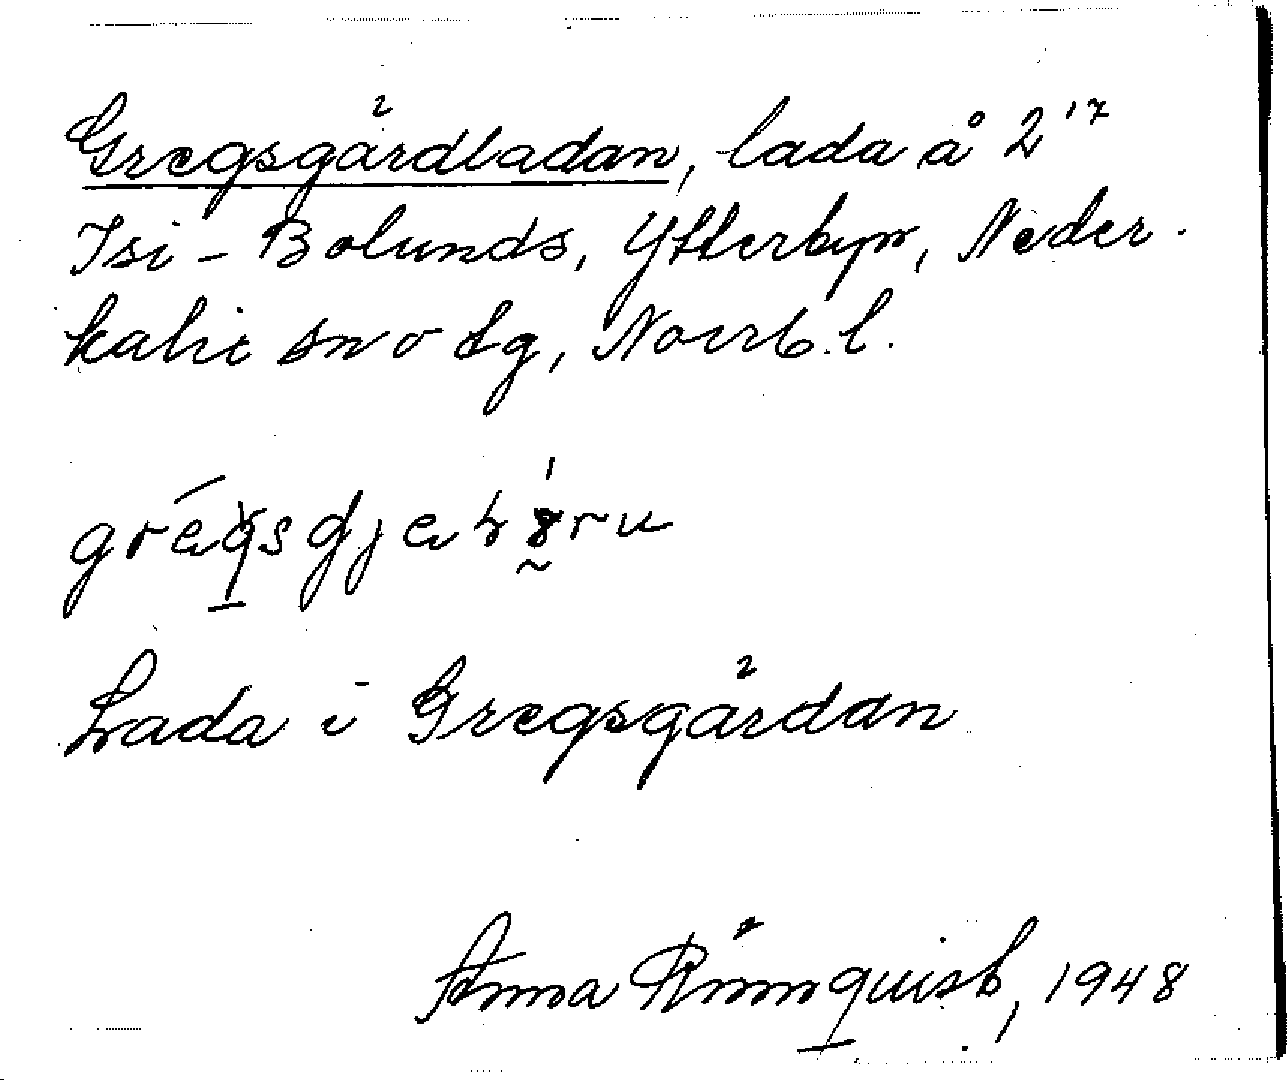 Gregsgårdladan, lada å 2¹⁷
Isi-Bolunds, Ytterbyn, Neder-
kalix sn o tg, Norrb. l.
Lada i Gregsgårdan
Anna Rönnquist, 1948